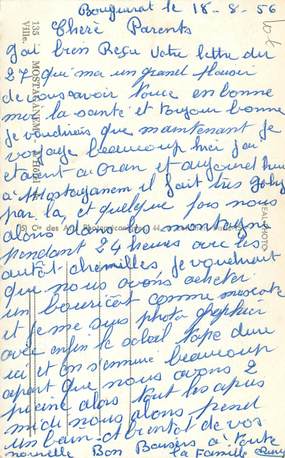 Bouguirat le 18-8-56
Chere Parents
J'ai bien Reçu votre lettre du
27 qui ma un grand plaisir
de vous savoir tous en bonne
santé et toujour bonne
je voudriais que maintenant je
voyage beaucoup hier j'ai
etaient a Oran et aujourd'hui
a Mostaganem il fait très joly
par la, et quelque fois nous
alons dans les montagnes
pendant 24 heures avec les
autot chenilles je voudriait
que nous avons acheter
un bouricot comme mascote
et je me suis photographier
avec enfin le soleil tape dure
ici et on s'ennuie beaucoup
apart que nous avons 2
picine alors tout les apres
midi nous alons prend
un bain et bientot de vos
nouvelle Bon Baisers a toute
la Famille
135
MOSTAGANEM
Ville.
Cie des
44,
REAL-PHOTO